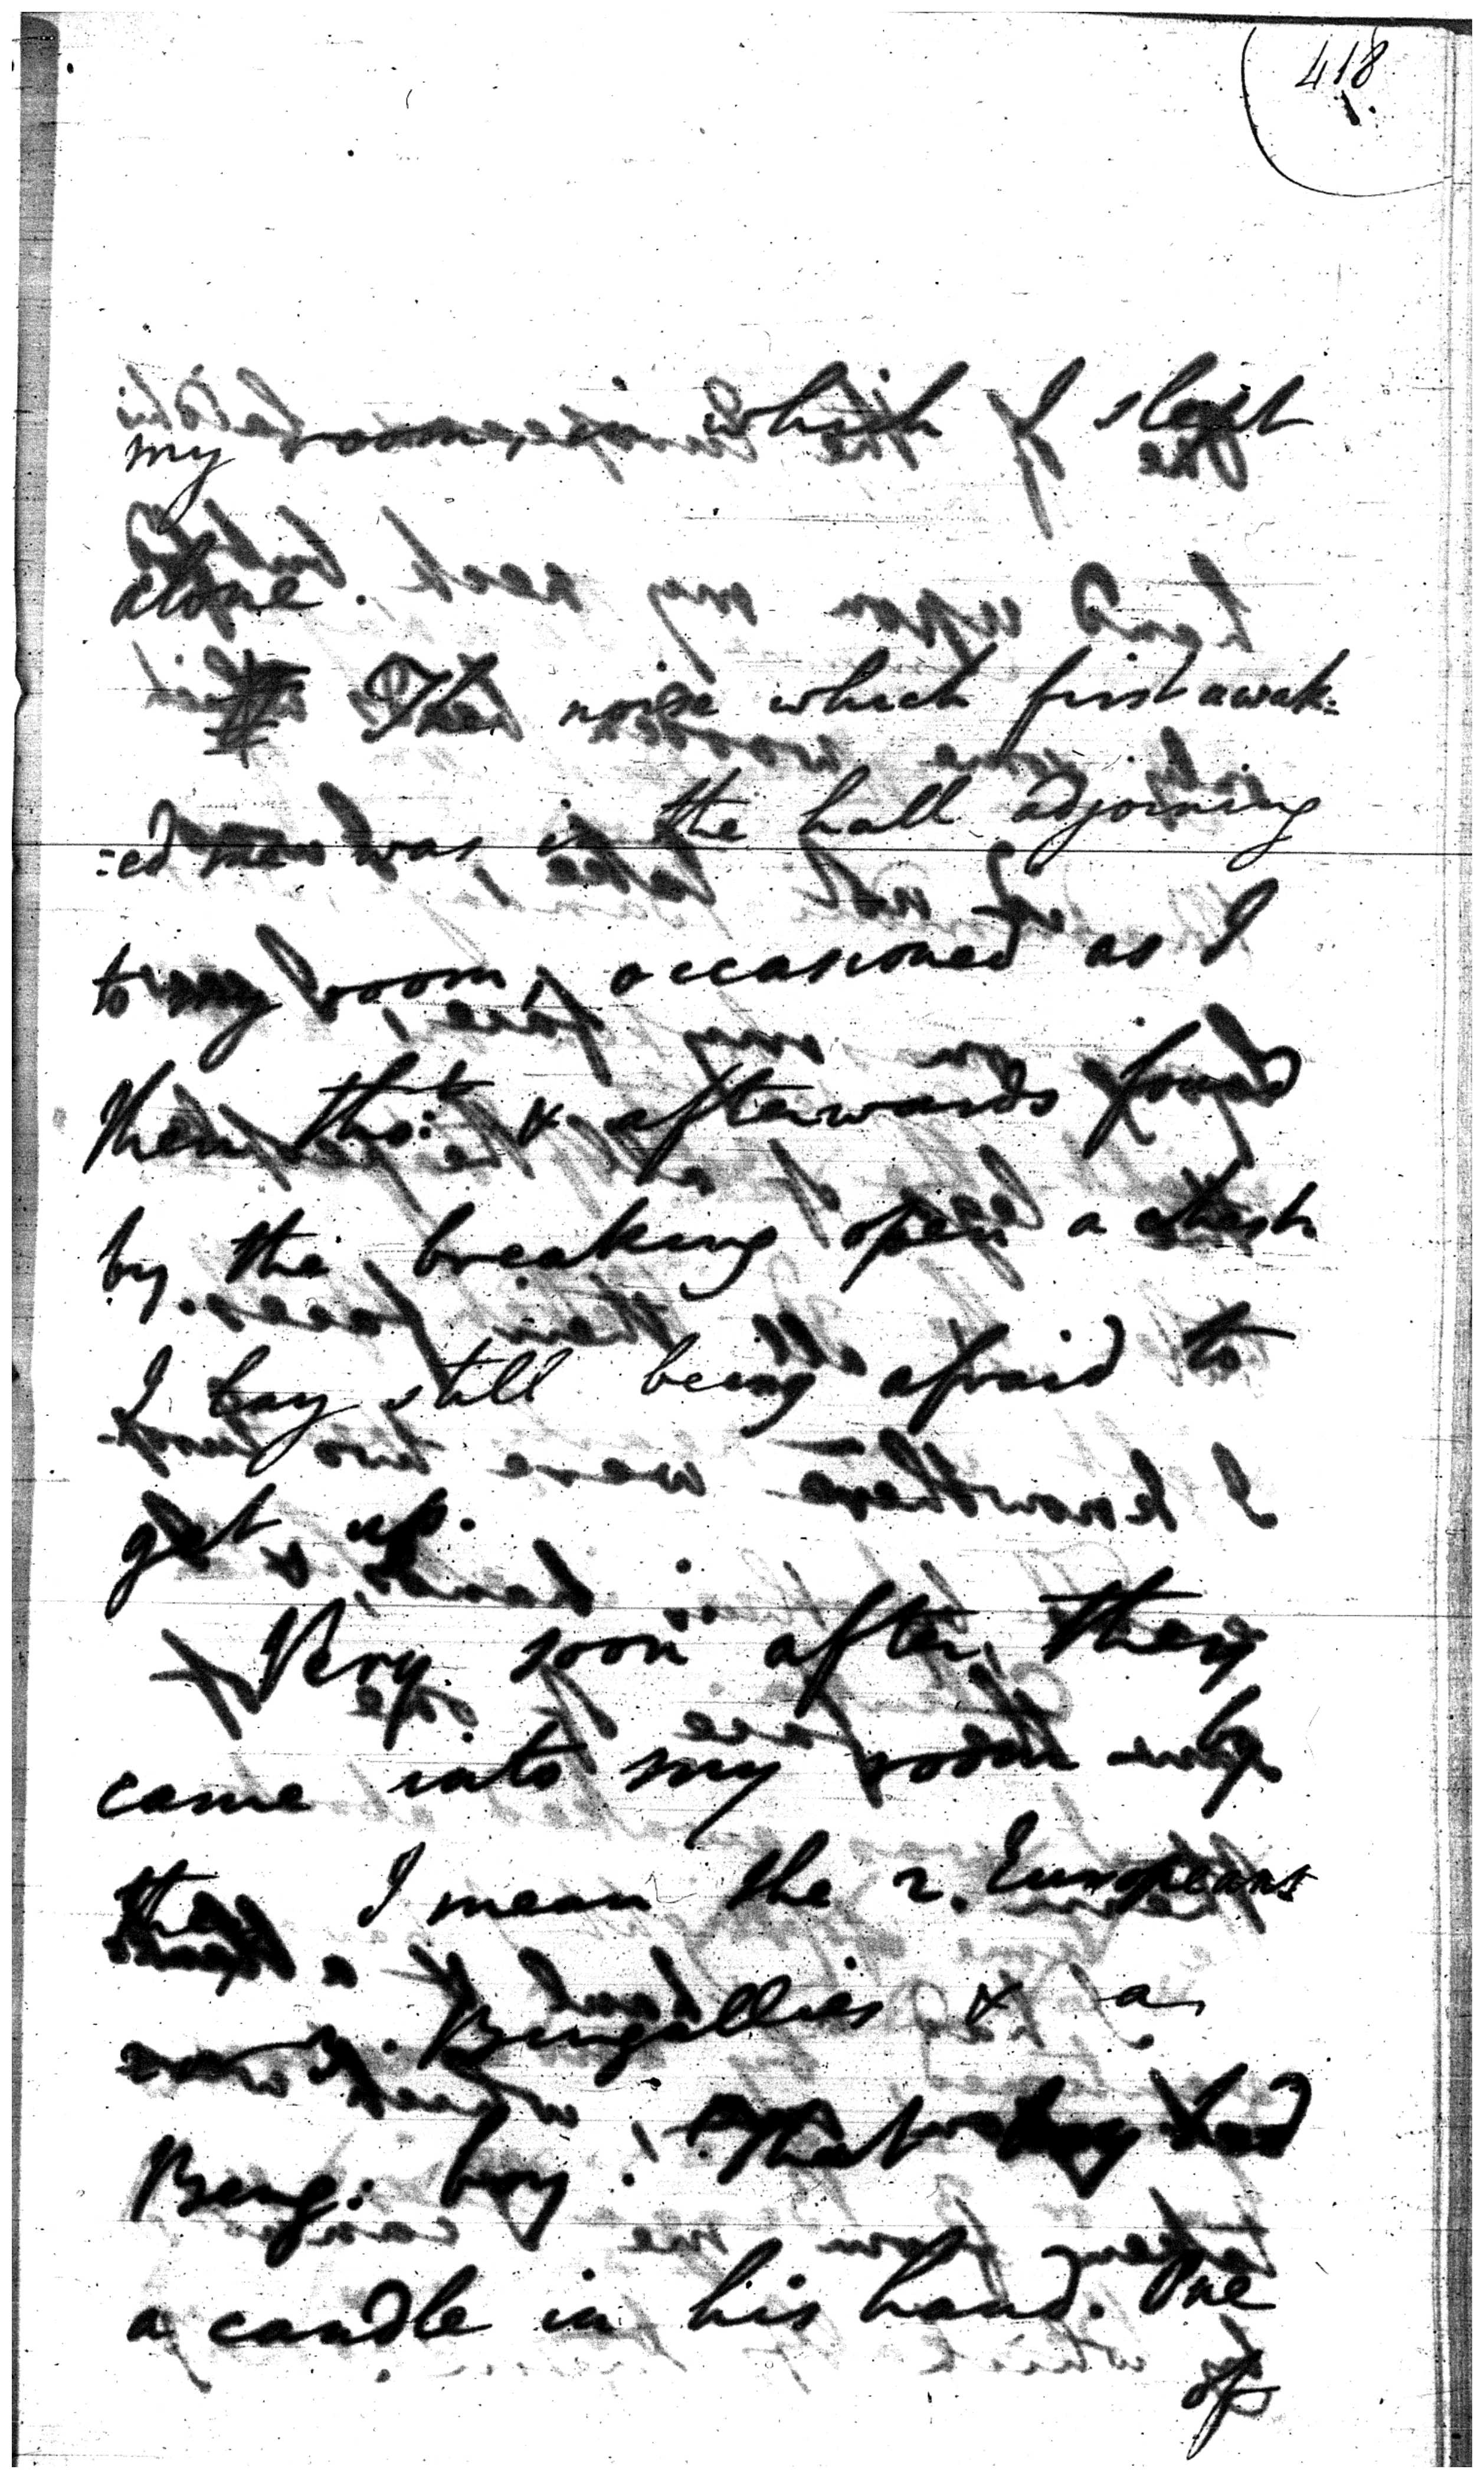 418
my room, in which I slept
alone.
The noise which first awak=
=ed me was in the hall adjoining
to my room, occasioned as I
then tho:t & afterwards found
by the breaking open a chest.
I lay still being afraid to
get up.
Very soon after, they
came into my room
they I mean the 2. Europeans
2. Bengallies & a
Beng: boy. That boy had
a candle in his hand. One
of